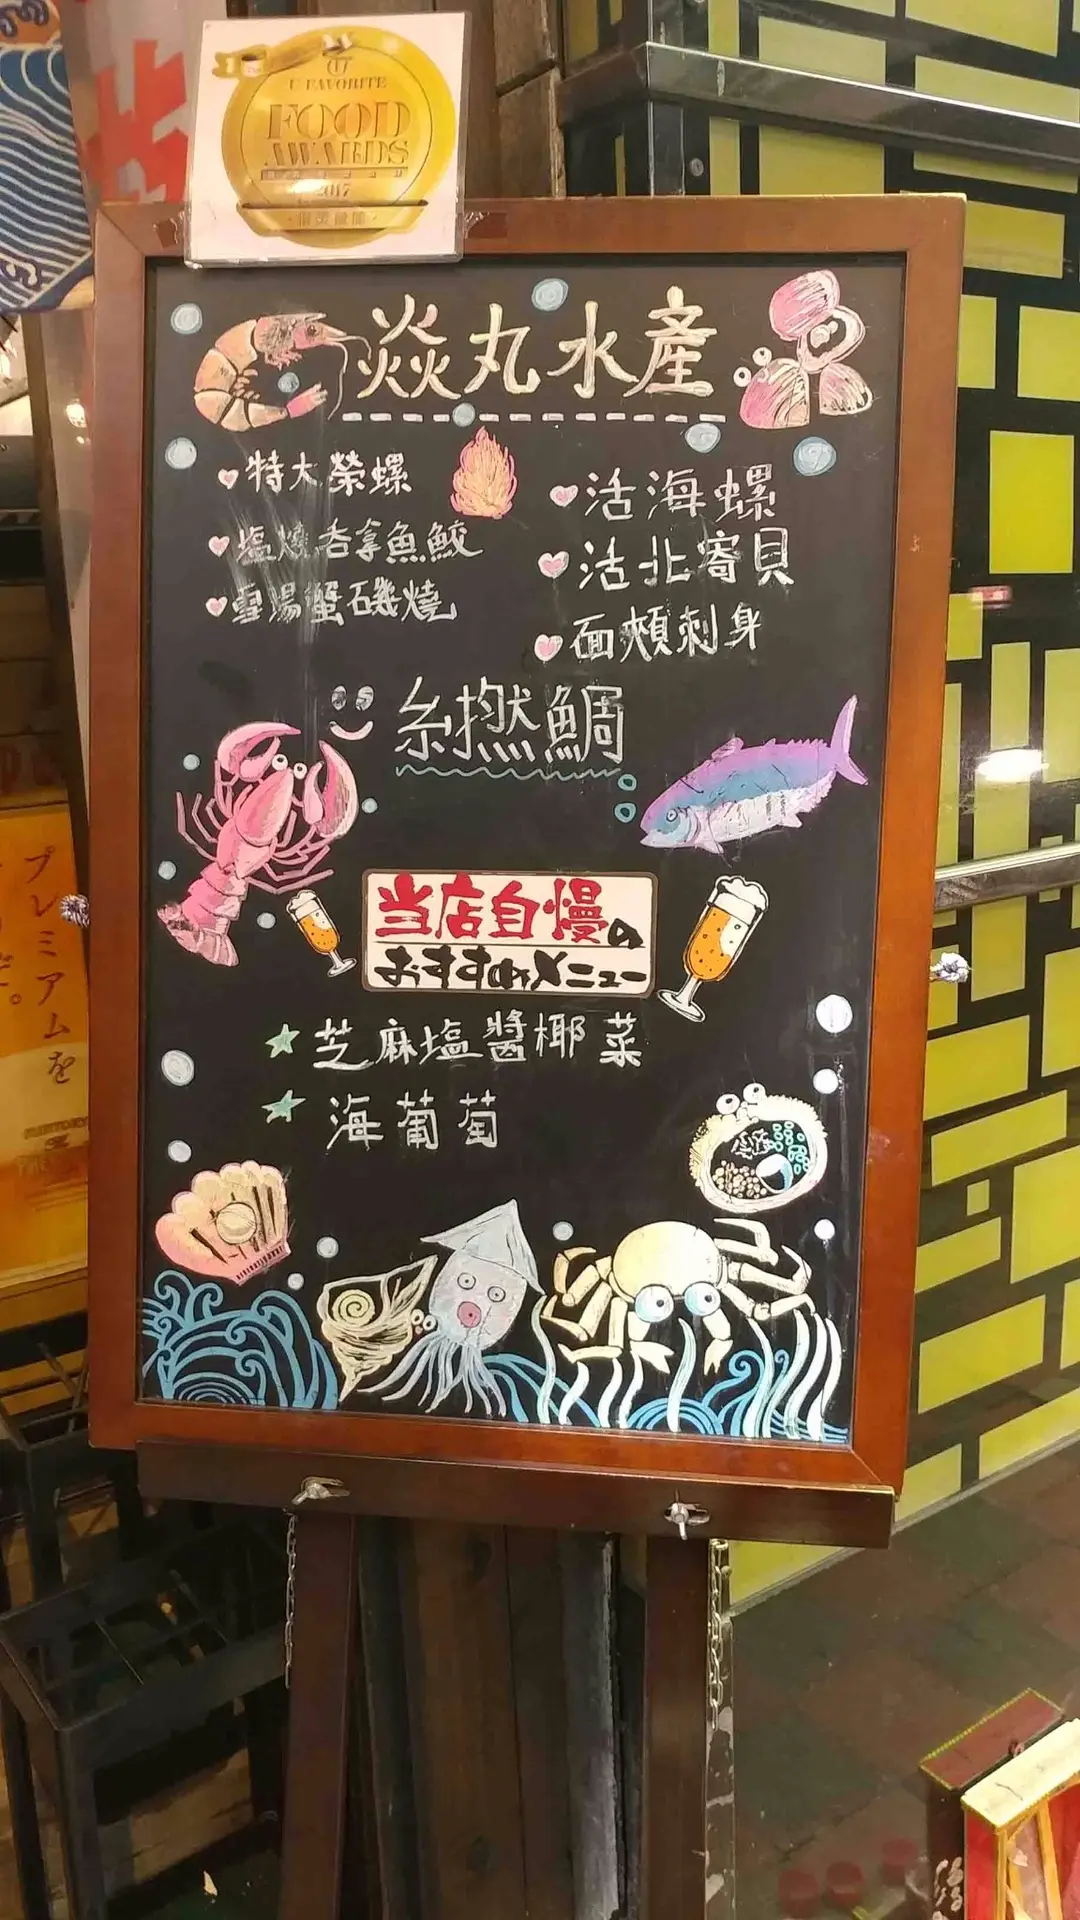 U FAVORITE
FOOD
AWARDS
2017
焱丸水產
特大榮螺
塩燒吞拿魚鮫
雪場蟹磯燒
活海螺
活北寄貝
面頰刺身
糸撚鯛
当店自慢の
おすすめメニュー
芝麻塩醬椰菜
海葡萄
プレミアムを